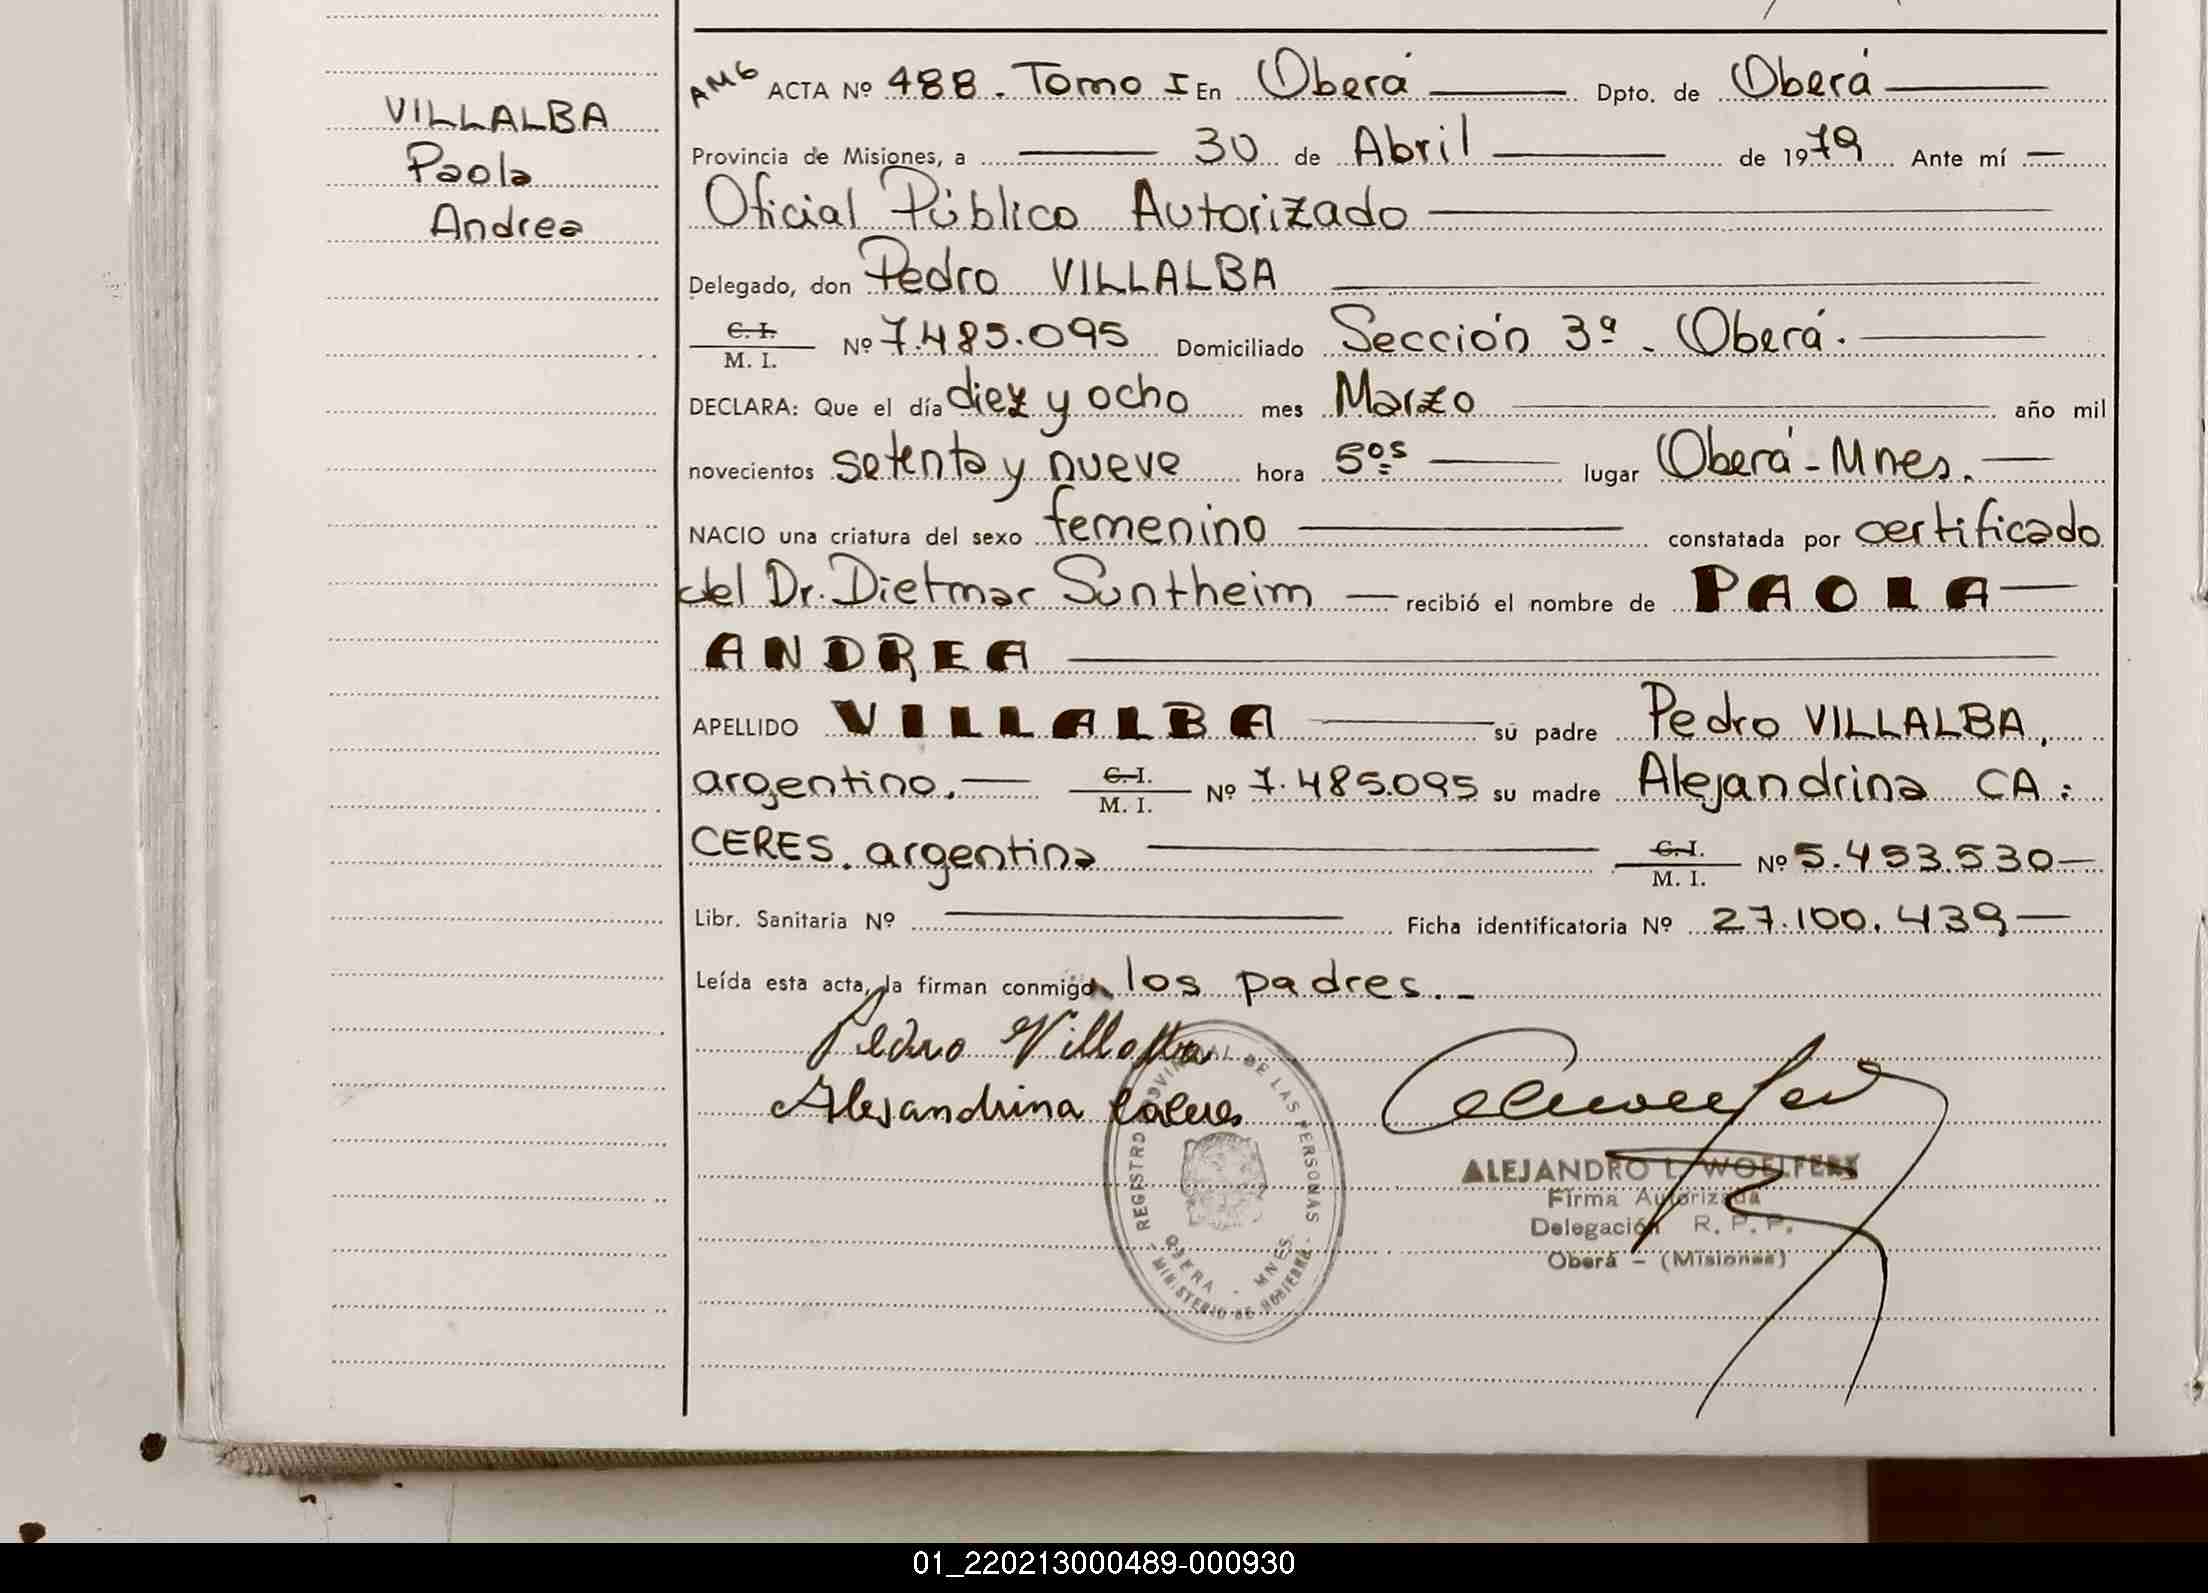 VILLALBA
Paola
Andrea
AMG ACTA Nº 488. Tomo I En Oberá Dpto. de Oberá
Provincia de Misiones, a 30 de Abril de 1979 Ante mí
Oficial Público Autorizado
Delegado, don Pedro VILLALBA
C. I.
M. I. Nº 7.485.095 Domiciliado Sección 3ª - Oberá.
DECLARA: Que el día diez y ocho mes Marzo año mil
novecientos setenta y nueve hora 5os lugar Oberá - Mnes.
NACIO una criatura del sexo femenino constatada por certificado
del Dr. Dietmar Suntheim recibió el nombre de PAOLA
ANDREA
APELLIDO VILLALBA su padre Pedro VILLALBA,
argentino. C. I. M. I. Nº 7.485.095 su madre Alejandrina CA:
CERES. argentina C. I. M. I. Nº 5.453.530
Libr. Sanitaria Nº Ficha identificatoria Nº 27.100.439
Leída esta acta, la firman conmigo los padres.-
Pedro Villalba
Alejandrina Caceres
REGISTRO PROVINCIAL DE LAS PERSONAS
OBERA - MNES.
- MINISTERIO DE GOBIERNO -
ALEJANDRO L. WOELFERT
Firma Autorizada
Delegación R. P. P.
Oberá - (Misiones)
01_220213000489-000930